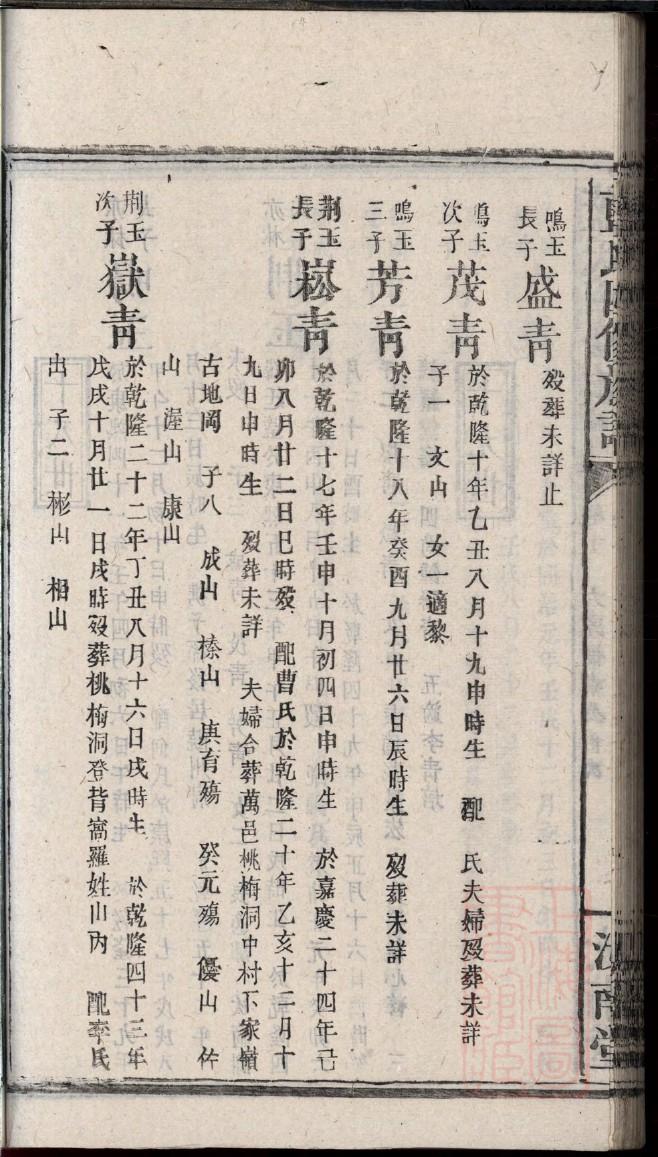 四修族譜
南堂
鳴玉長子 盛青 歿葬未詳止
鳴玉次子 茂青 於乾隆十年乙丑八月十九申時生 配 氏夫婦歿葬未詳
子一 文山 女一適黎
鳴玉三子 芳青 於乾隆十八年癸酉九月廿六日辰時生 歿葬未詳
荆玉長子 崧青 於乾隆十七年壬申十月初四日申時生 於嘉慶二十四年己
卯八月廿二日巳時歿 配曹氏於乾隆二十年乙亥十二月十
九日申時生 歿葬未詳 夫婦合葬萬邑桃梅洞中村下家嶺
古地岡 子八 成山 榛山 庚有殤 癸元殤 優山 作
山 渥山 康山
荆玉次子 嶽青 於乾隆二十二年丁丑八月十六日戌時生 於乾隆四十三年
戊戌十月廿一日戌時歿葬桃梅洞登背窩羅姓山內 配李氏
出 子二 彬山 相山